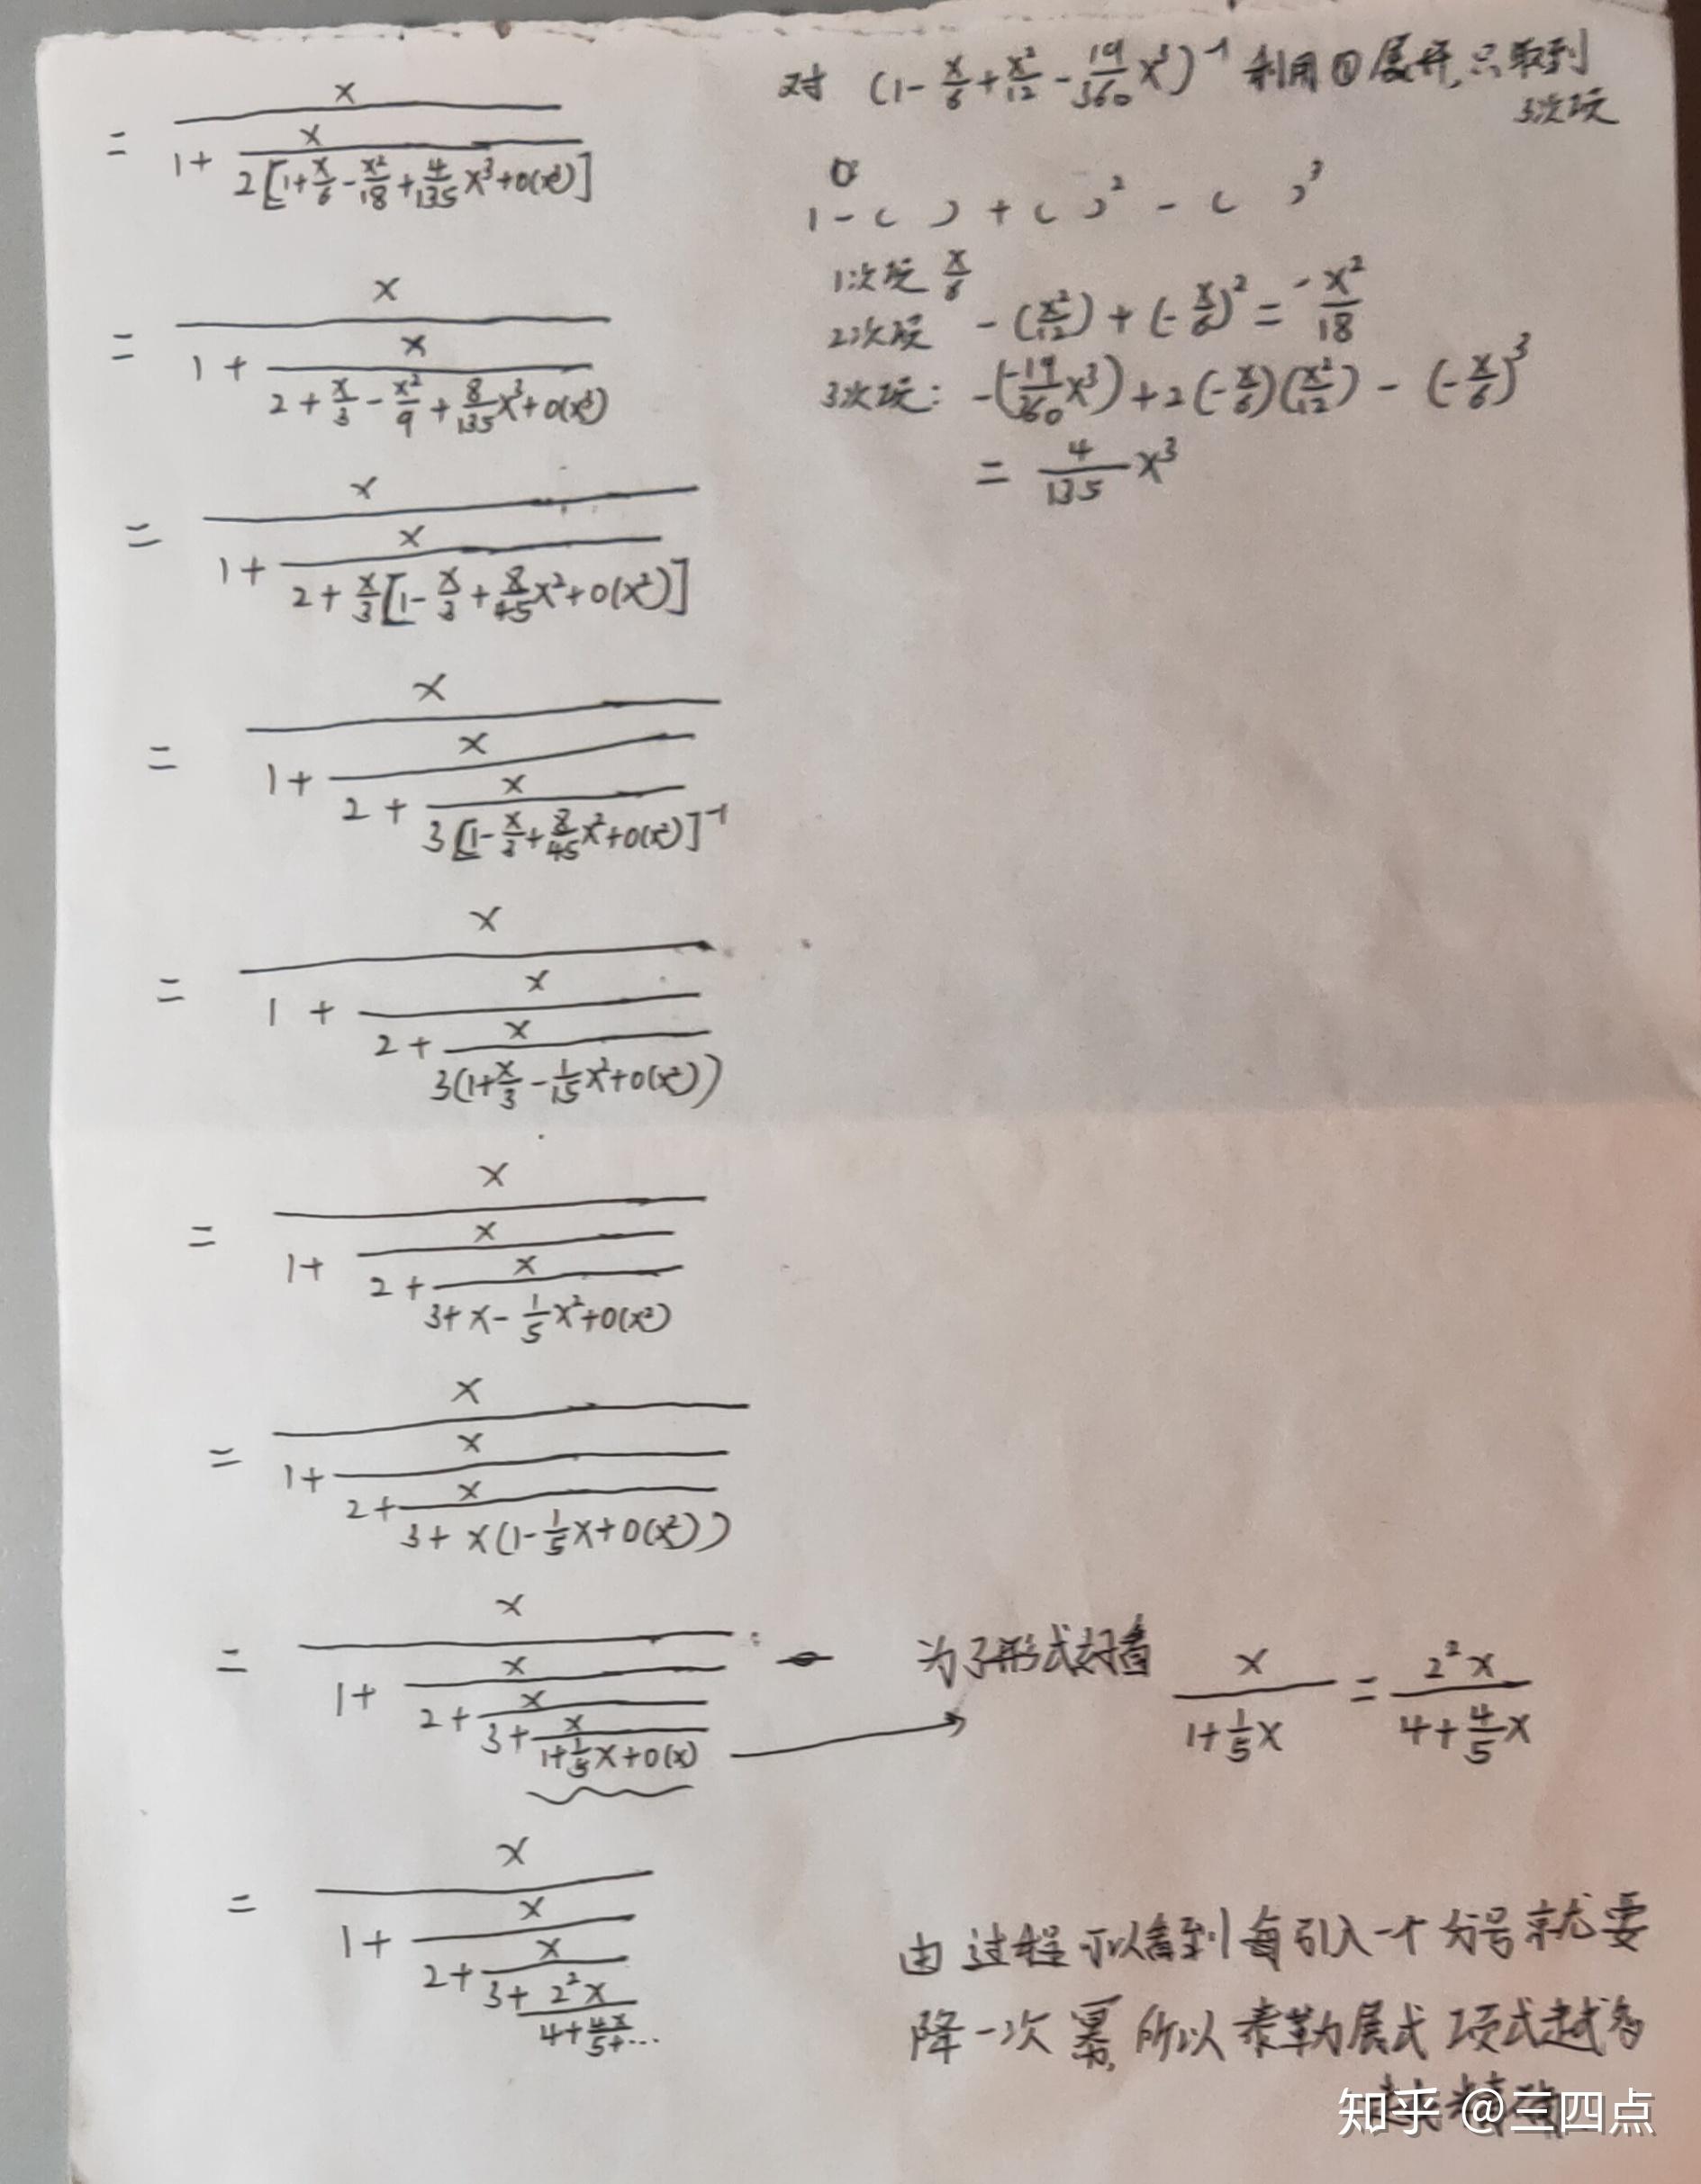 = \frac{x}{1+\frac{x}{2[1+\frac{x}{6}-\frac{x^2}{18}+\frac{4}{135}x^3+o(x^3)]}}
= \frac{x}{1+\frac{x}{2+\frac{x}{3}-\frac{x^2}{9}+\frac{8}{135}x^3+o(x^3)}}
= \frac{x}{1+\frac{x}{2+\frac{x}{3}[1-\frac{x}{3}+\frac{8}{45}x^2+o(x^2)]}}
= \frac{x}{1+\frac{x}{2+\frac{x}{3[1-\frac{x}{3}+\frac{8}{45}x^2+o(x^2)]^{-1}}}}
= \frac{x}{1+\frac{x}{2+\frac{x}{3(1+\frac{x}{3}-\frac{1}{15}x^2+o(x^2))}}}
= \frac{x}{1+\frac{x}{2+\frac{x}{3+x-\frac{1}{5}x^2+o(x^2)}}}
= \frac{x}{1+\frac{x}{2+\frac{x}{3+x(1-\frac{1}{5}x+o(x^2))}}}
= \frac{x}{1+\frac{x}{2+\frac{x}{3+\frac{x}{1+\frac{1}{5}x+o(x)}}}}
= \frac{x}{1+\frac{x}{2+\frac{x}{3+\frac{2^2x}{4+\frac{4x}{5+\cdots}}}}}
对 (1-\frac{x}{6}+\frac{x^2}{12}-\frac{19}{360}x^3)^{-1} 利用①展开,只取到
3次项
1-( )+( )^2-( )^3
1次项 \frac{x}{6}
2次项 -(\frac{x^2}{12})+(-\frac{x}{6})^2=\frac{-x^2}{18}
3次项: -(\frac{-19}{360}x^3)+2(-\frac{x}{6})(\frac{x^2}{12})-(-\frac{x}{6})^3
= \frac{4}{135}x^3
为了形式好看 \frac{x}{1+\frac{1}{5}x}=\frac{2^2x}{4+\frac{4}{5}x}
由过程可以看到每引入一个分号就要
降一次幂,所以泰勒展式项式越多
知乎 @三四点